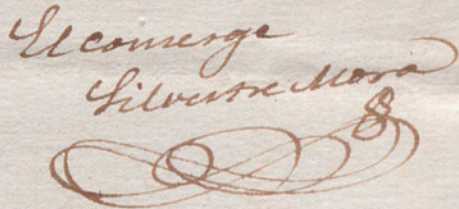 El conserge
Silvestre Mora